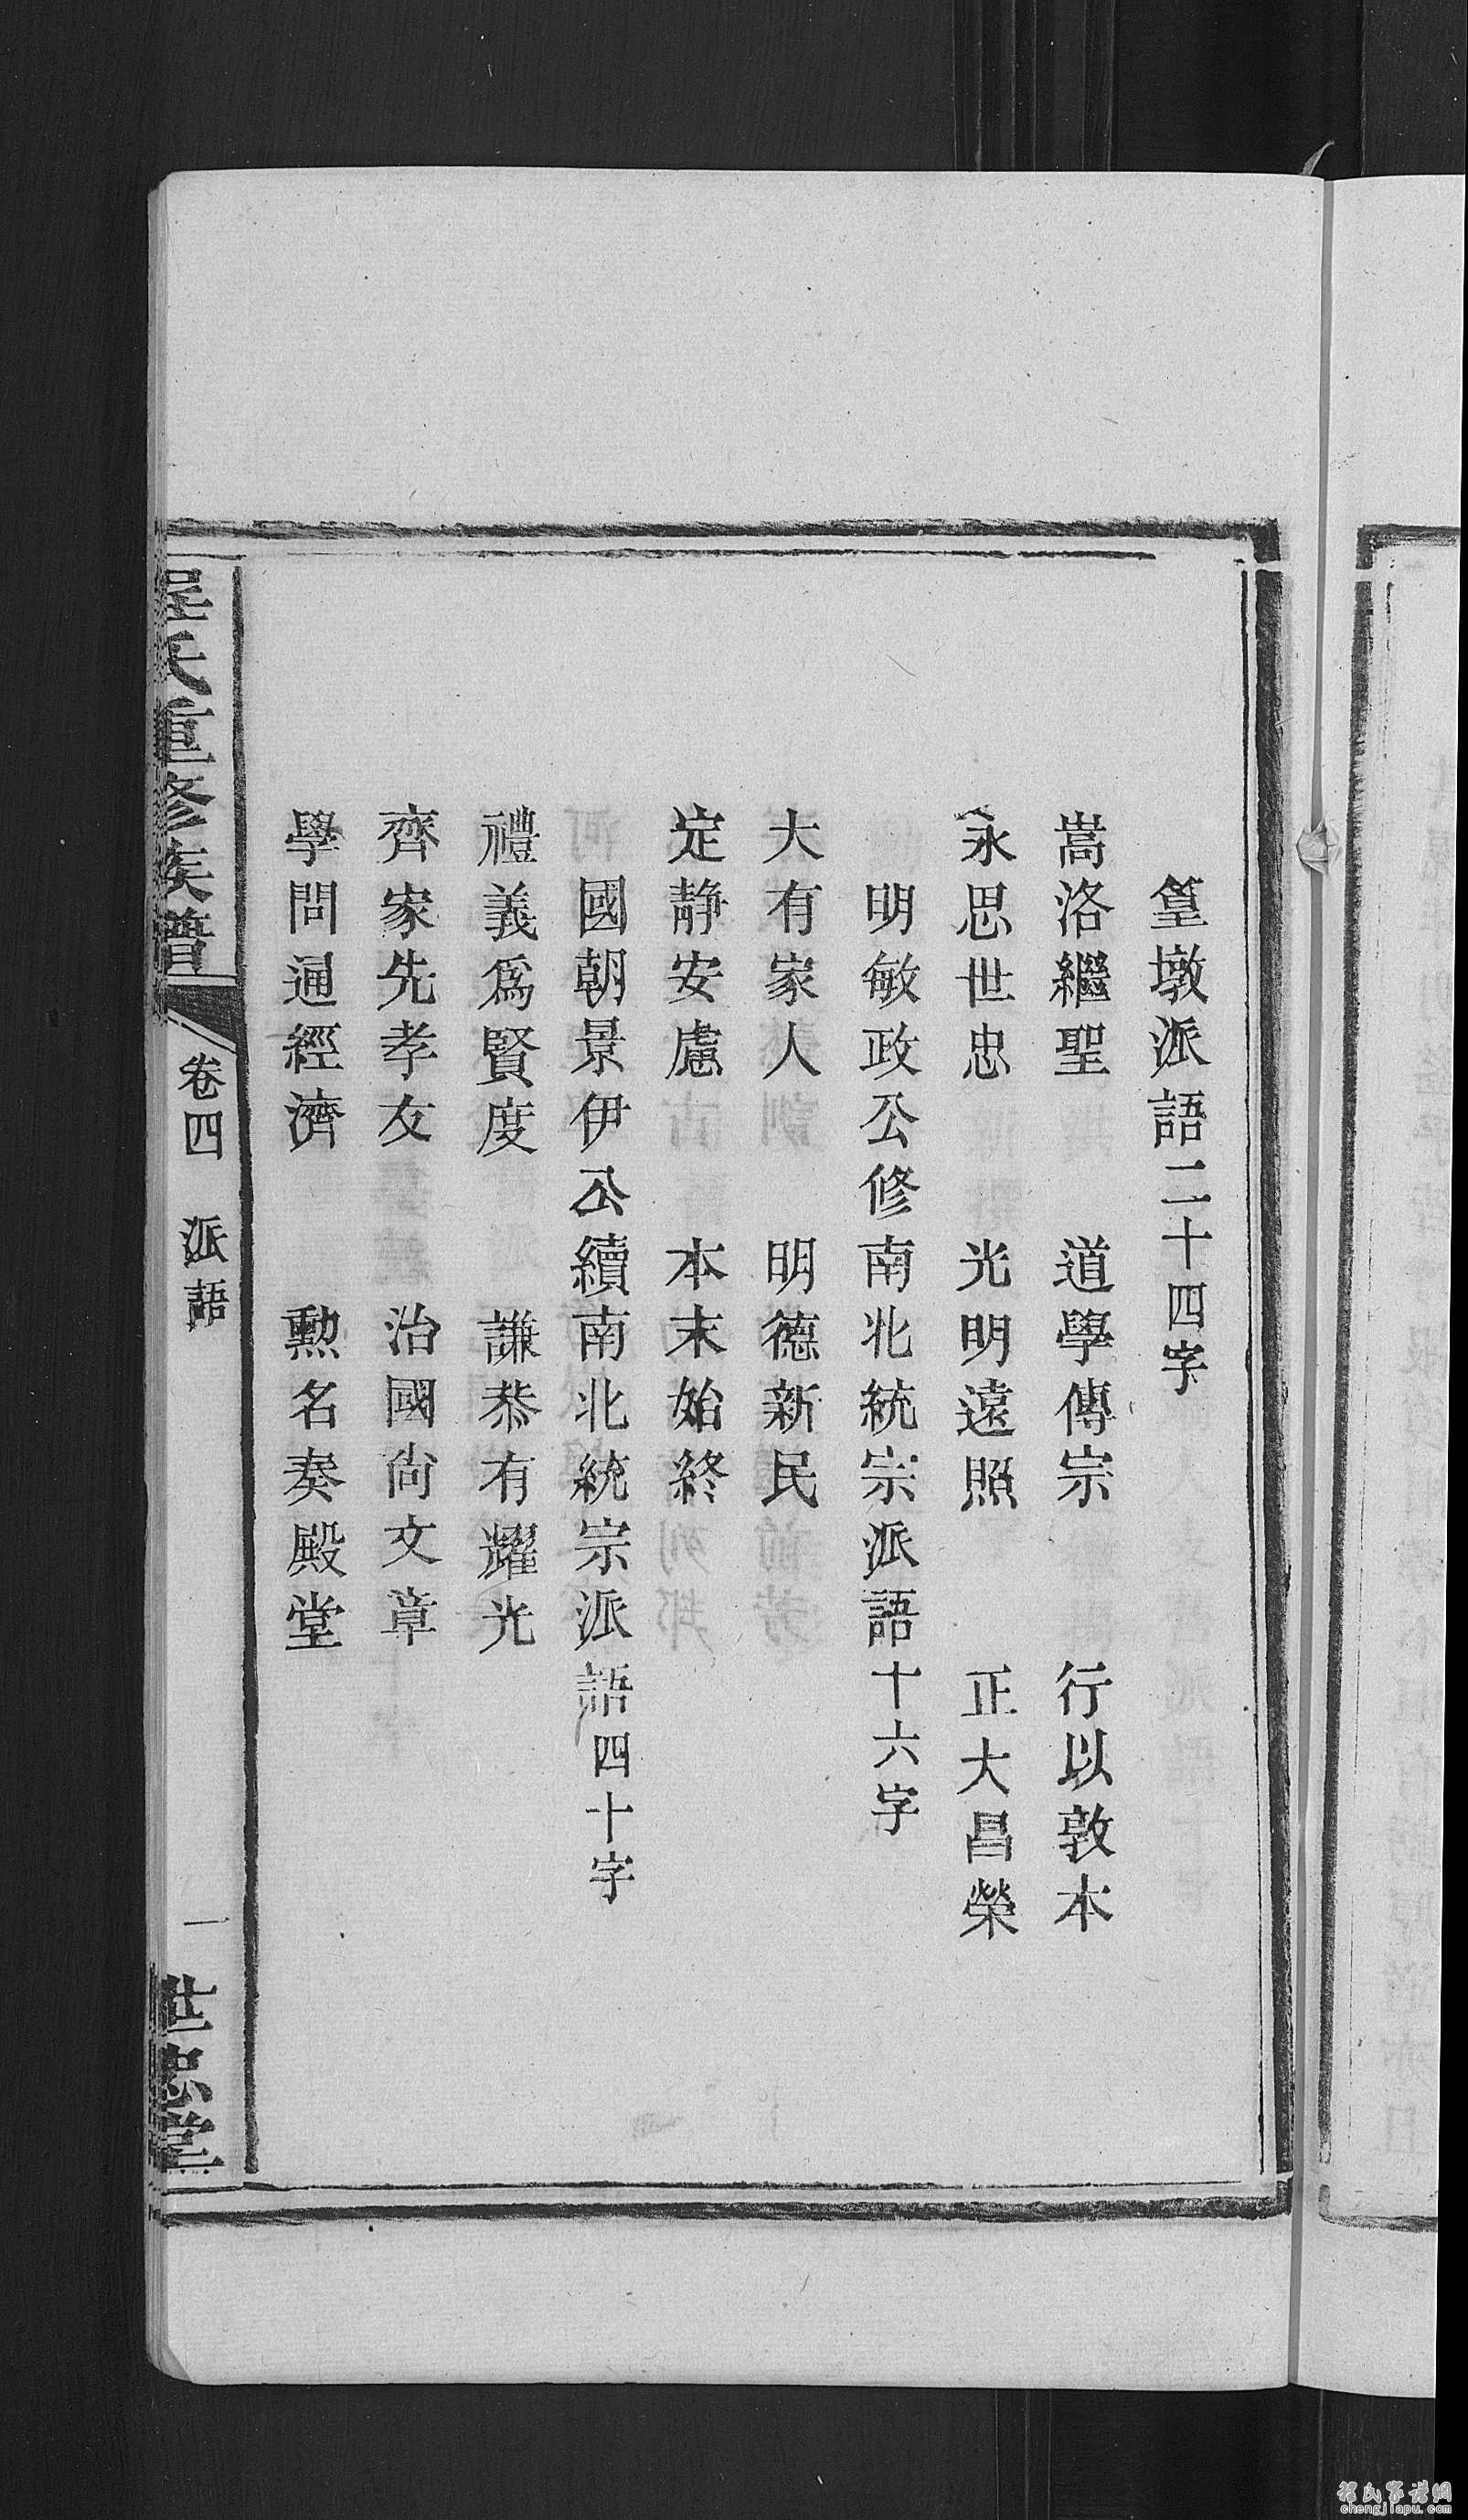 篁墩派語二十四字
嵩洛繼聖　道學傳宗　行以敦本
永思世忠　光明遠照　正大昌榮
明敏政公修南北統宗派語十六字
大有家人　明德新民
定靜安慮　本末始終
國朝景伊公續南北統宗派語四十字
禮義爲賢度　謙恭有耀光
齊家先孝友　治國尙文章
學問通經濟　勲名奏殿堂
程氏重修族譜　卷四　派語　一　世忠堂
程氏家譜網
chengjiapu.com